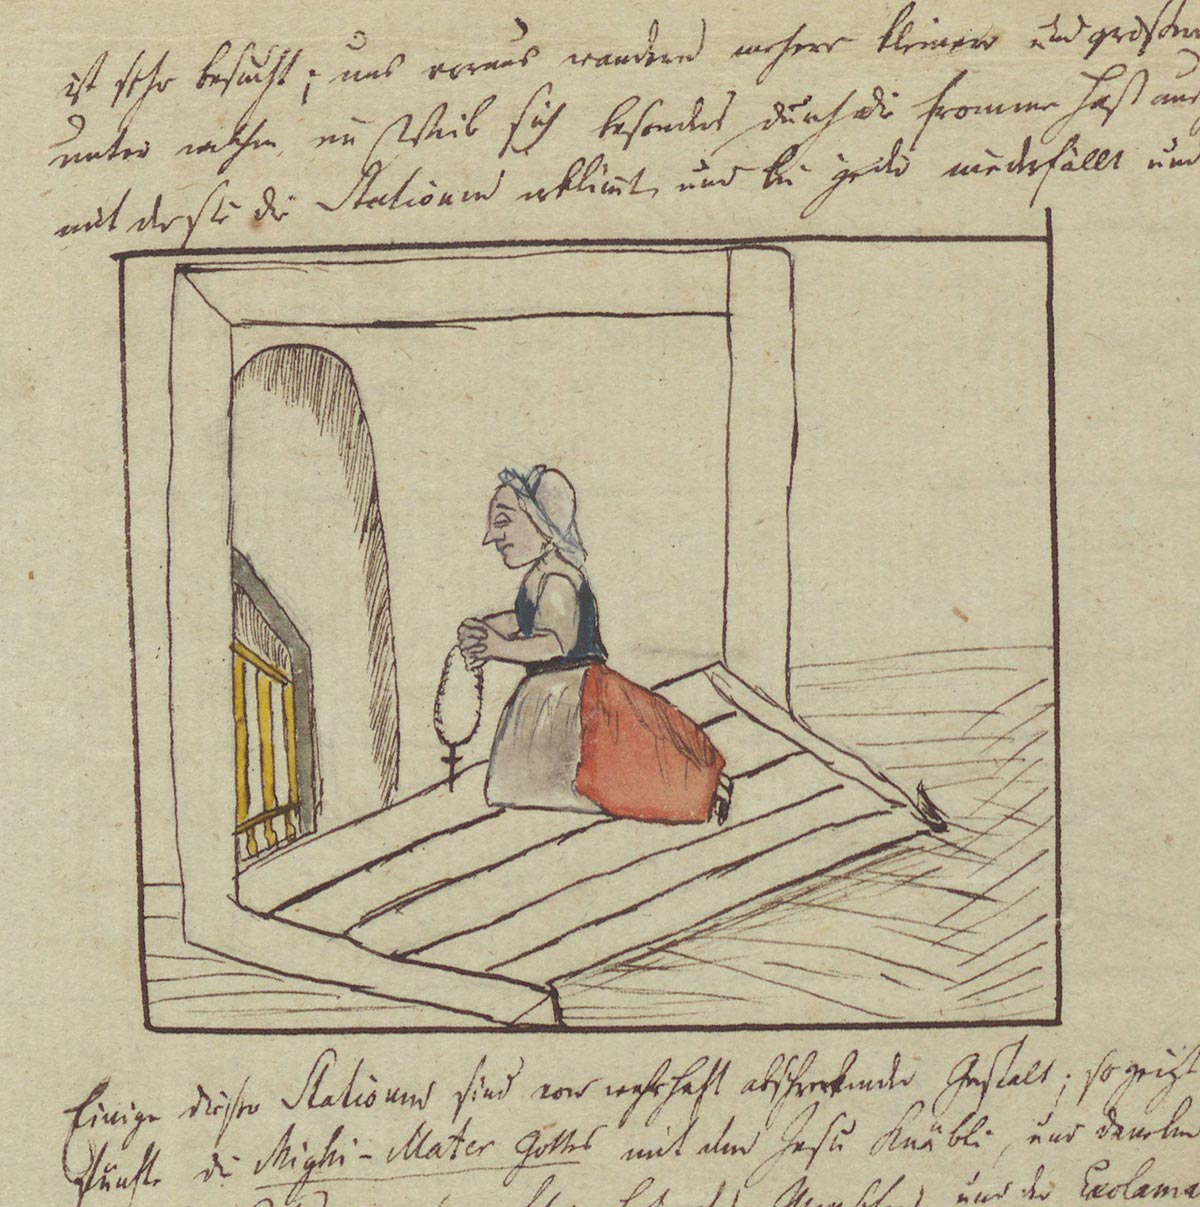 ist sehr besucht; uns voraus wandern mehrere kleinere und grössere
unter welchen ein Weib sich besonders durch die fromme Hast aus
mit der sie die Stationen erklimt, und bei jeder niederfällt und
Einige dieser Stationen sind von wahrhaft abschreckender Gestalt; so zeigt
fünfte die Righi-Mater Gottes mit dem Jesu Knäbli, und daneben
und der Exclama